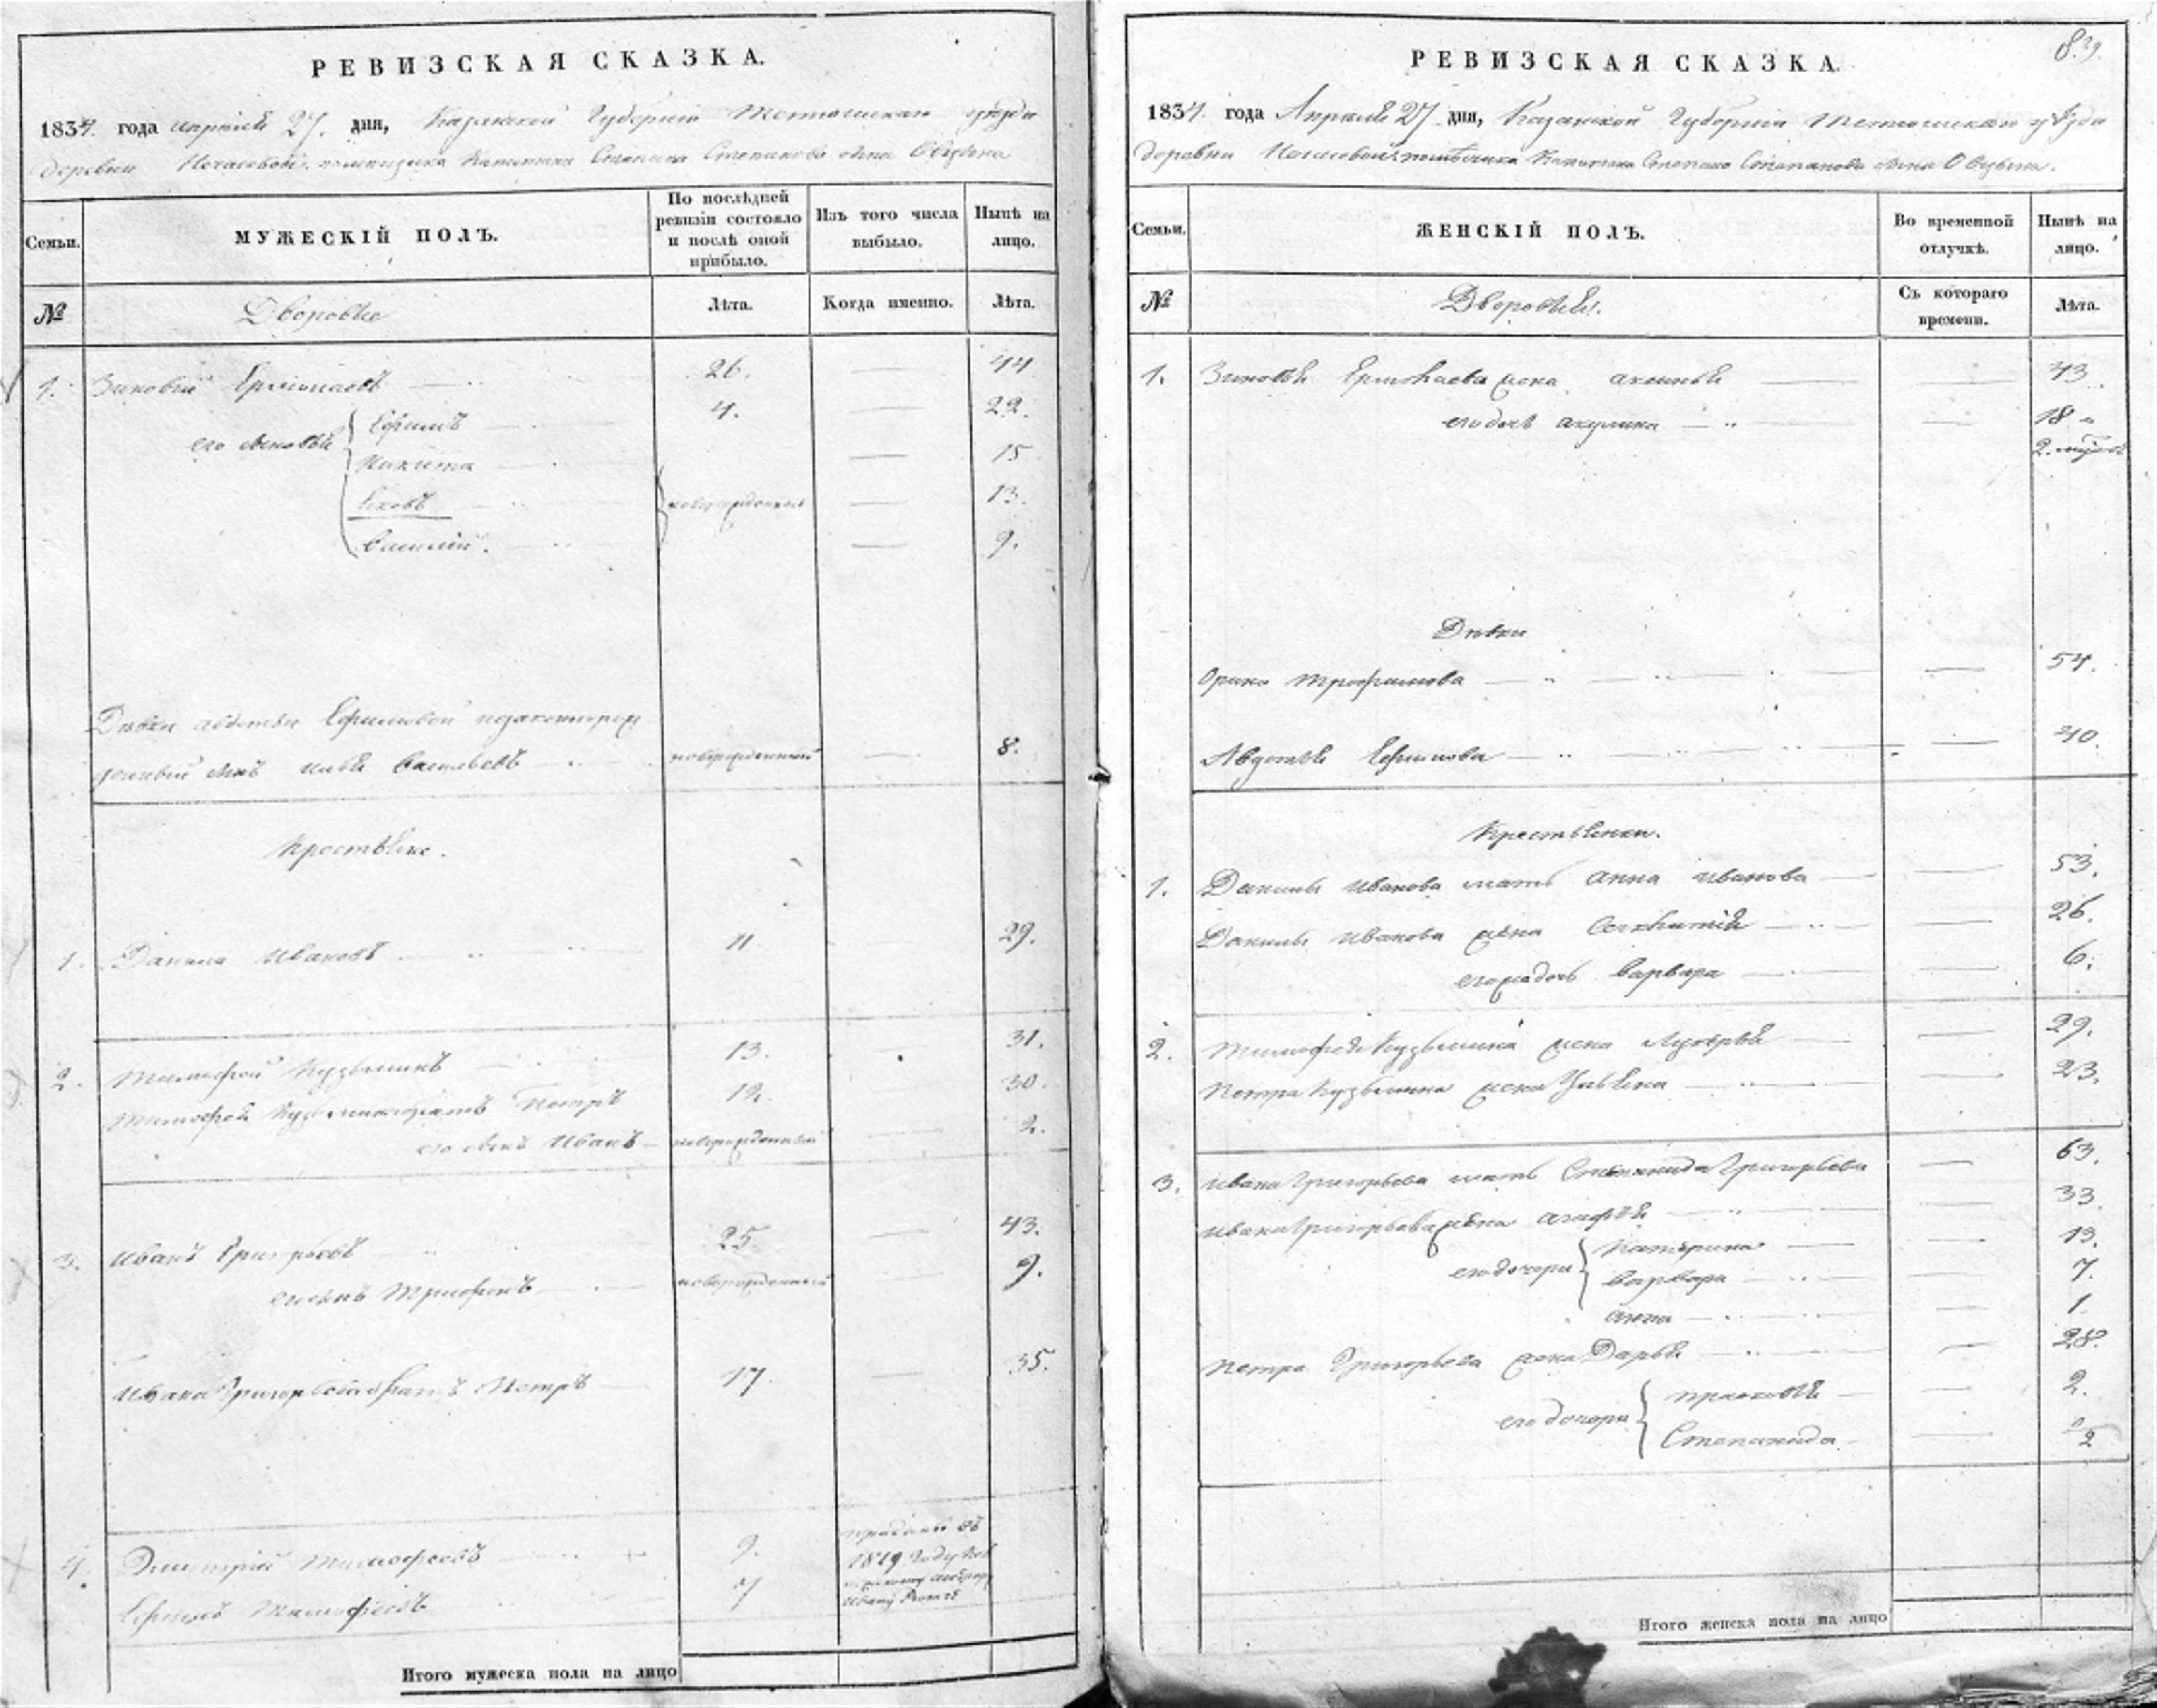 РЕВИЗСКАЯ СКАЗКА.
1834 года апреля 27. дня, Казанской Губернии Тетюшскаго уезда
деревни помещика Капитана Степана Степанова сына
Семьи.
МУЖЕСКІЙ ПОЛЪ.
По послѣдней ревизіи состояло и послѣ оной прибыло.
Изъ того числа выбыло.
Нынѣ на лицо.
№
Дворовые
Лѣта.
Когда именно.
Лѣта.
1. Зиновей Ермолаевъ 26. 44
его сыновья Ефимъ 4. 22.
Никита 15
Яковъ новорожденные 13.
Василій. 9.
Девки авдотьи Ефимовой незаконнорож
денный сынъ Васильевъ новорожденный 8.
Крестьяне.
1. Данила Ивановъ 11 29.
2. Тимофей Кузьминъ 13. 31.
Тимофея Кузьмина братъ Петръ 12. 30.
его сынъ Иванъ новорожденный 2.
3. Иванъ Григорьевъ 25. 43.
его сынъ Трифонъ новорожденный 9.
Ивана Григорьева братъ Петръ 17. 35.
4. Дмитрій Тимофеевъ 9.
Ефимъ Тимофеевъ 7
проданы въ
1819 году
Ивану
Итого мужеска пола на лицо
РЕВИЗСКАЯ СКАЗКА.
839.
1834 года Апреля 27 дня, Казанской Губерніи Тетюшскаго уезда
деревни помещика Капитана Степана Степанова сына
Семьи.
ЖЕНСКІЙ ПОЛЪ.
Во временной отлучкѣ.
Нынѣ на лицо.
№
Дворовыя.
Съ котораго времени.
Лѣта.
1. Зиновья Ермолаева жена аксинья 43
его дочь акулина 18
Девки
Орина трофимова 54.
Авдотья Ефимова 40.
Крестьянки.
1. Данилы Иванова мать анна иванова 53.
Данилы Иванова жена 26.
его жа дочь варвара 6.
2. Тимофея Кузьмина жена Лукерья 29.
Петра Кузьмина жена Ульяна 23.
3. Ивана Григорьева мать Степанида Григорьева 63.
Ивана Григорьева жена агафья 33
его дочери Катерина 13.
варвара 7.
анна 1.
Петра Григорьева жена Дарья 28.
его дочери прасковья 2.
Степанида
Итого женска пола на лицо